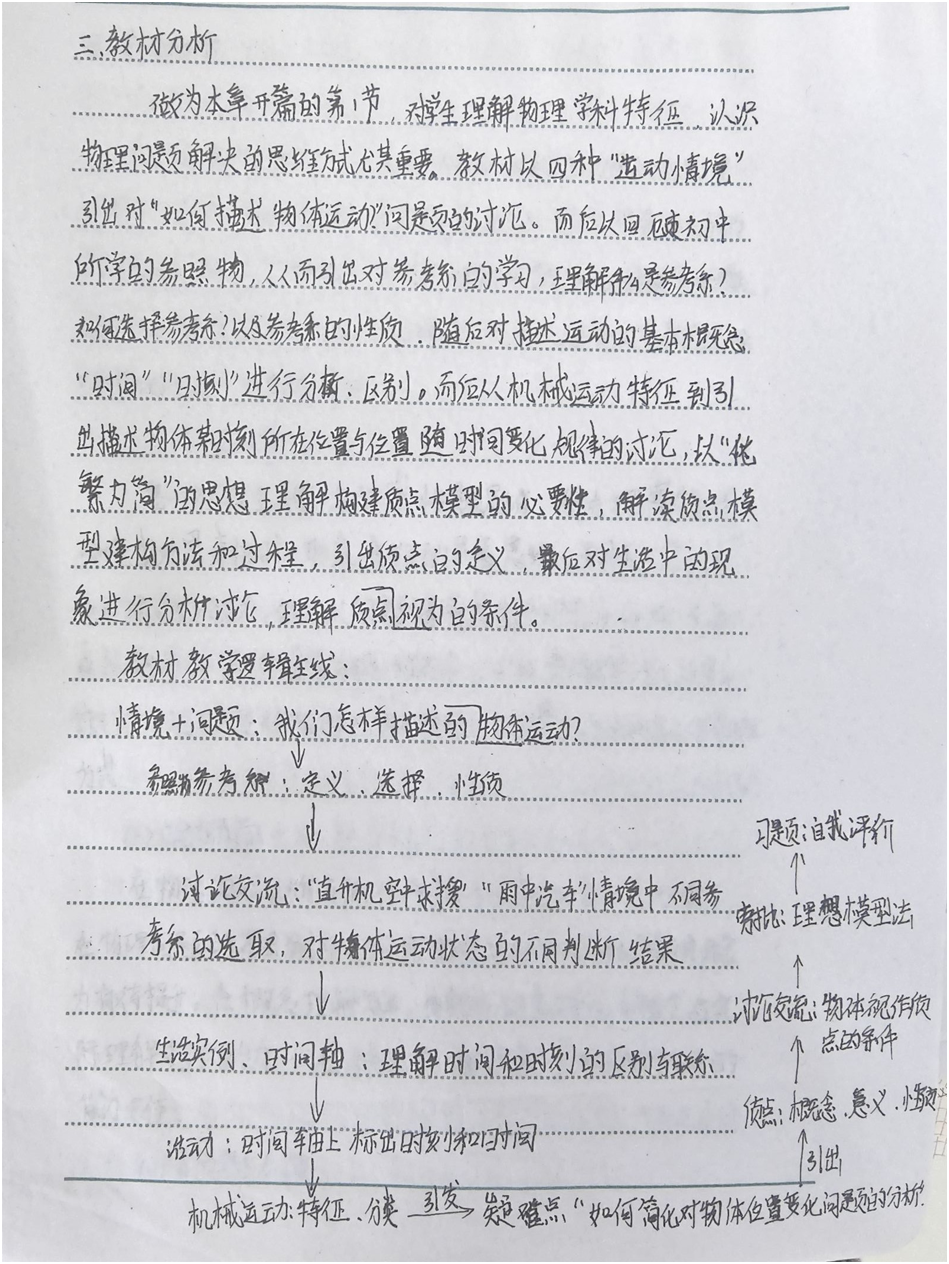 三、教材分析
做为本章开篇的第1节，对学生理解物理学科特征，认识
物理问题解决的思维方式尤其重要。教材以四种“运动情境”
引出对“如何描述物体运动”问题的讨论。而后以回顾初中
所学的参照物，从而引出对参考系的学习，理解什么是参考系？
如何选择参考系？以及参考系的性质。随后对描述运动的基本概念
“时间”“时刻”进行分析、区别。而后从机械运动特征到引
出描述物体某时刻所在位置与位置随时间变化规律的讨论，以“化
繁为简”的思想理解构建质点模型的必要性，解读质点模
型建构方法和过程，引出质点的定义，最后对生活中的现
象进行分析讨论，理解质点视为的条件。
教材教学逻辑主线：
情境+问题：我们怎样描述的物体运动？
参照物参考系：定义、选择、性质
讨论交流：“直升机空中求搜”“雨中汽车”情境中不同参
考系的选取，对物体运动状态的不同判断结果
生活实例、时间轴：理解时间和时刻的区别与联系
活动：时间轴上标出时刻和时间
机械运动：特征、分类 引发 疑难点“如何简化对物体位置变化问题的分析？
引出
质点：概念、意义、性质
讨论交流：物体视作质
点的条件
类比：理想模型法
习题：自我评价